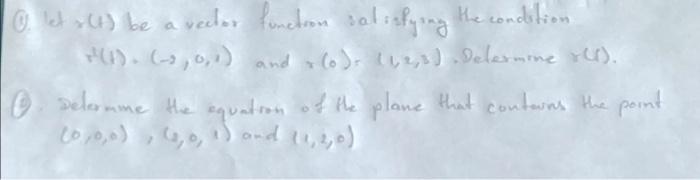 ①. let r(t) be a vector function satisfying the condition
r'(t) = (-2, 0, 1) and r(0) = (1, 2, 3). Determine r(t).
②. Determine the equation of the plane that contains the point
(0, 0, 0), (2, 0, 1) and (1, 2, 0)